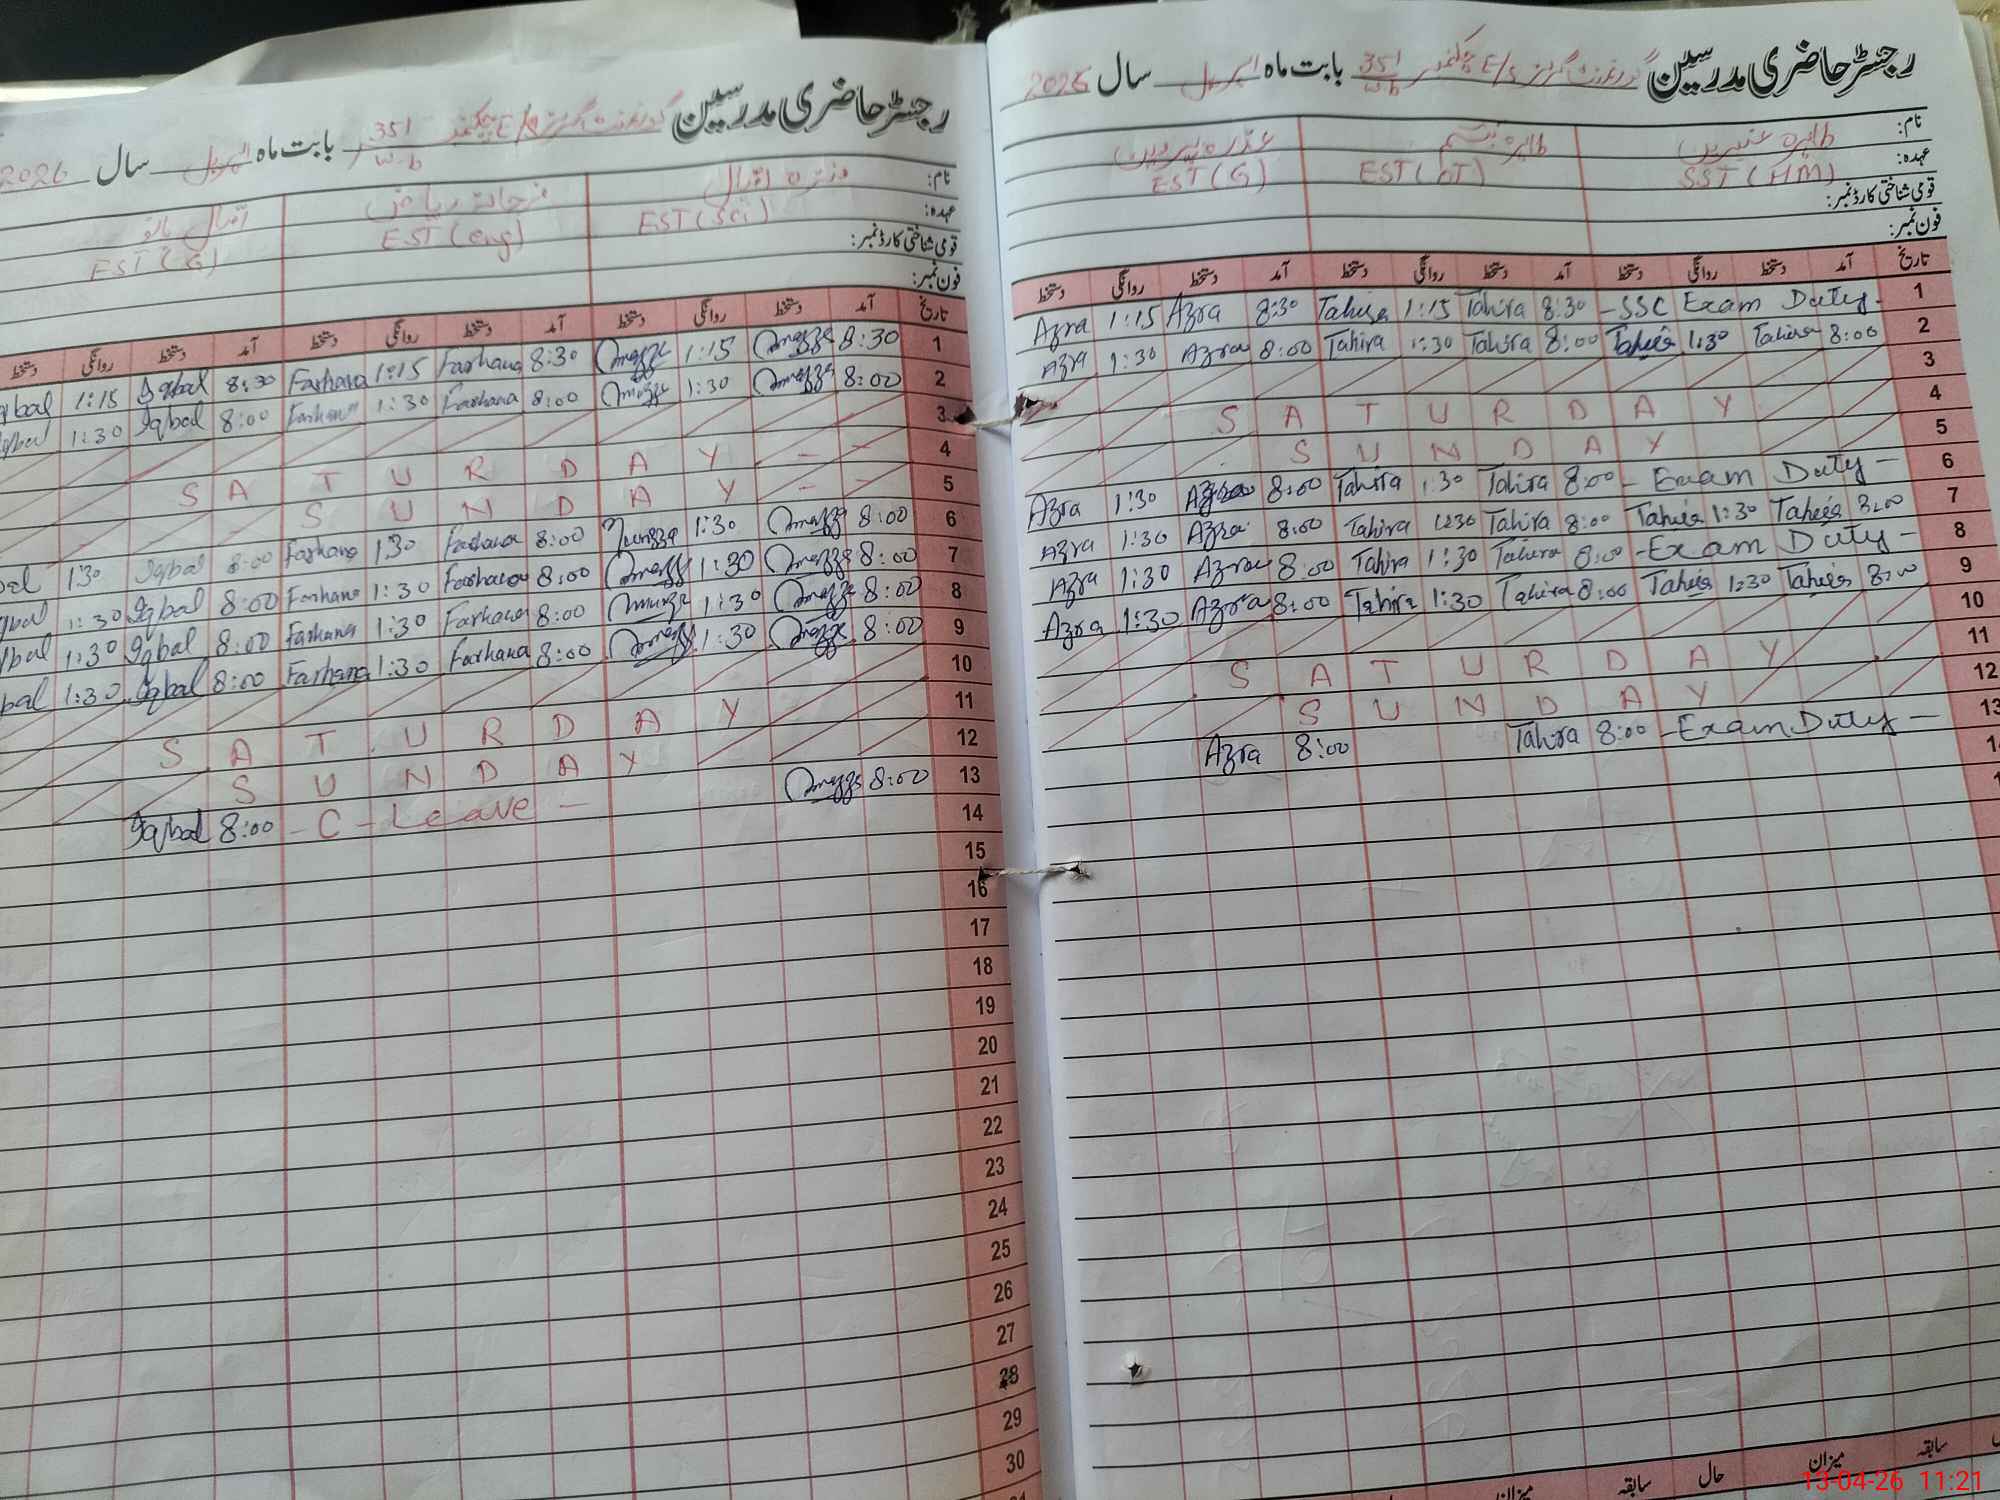 رجسٹر حاضری مدرسین گورنمنٹ گرلز E/S چکنمبر 351 W.B بابت ماہ اپریل سال 2026
نام: طاہرہ عنبرین طاہرہ تبسم عذرہ پروین
عہدہ: SST (HM) EST (PT) EST (G)
قومی شناختی کارڈ نمبر:
فون نمبر:
تاریخ آمد دستخط روانگی دستخط آمد دستخط روانگی دستخط آمد دستخط روانگی دستخط
Azra 1:15 Azra 8:30 Tahira 1:15 Tahira 8:30 - SSC Exam Duty - 1
Azra 1:30 Azra 8:00 Tahira 1:30 Tahira 8:00 Tahira 1:30 Tahira 8:00 2
3
SATURDAY 4
SUNDAY 5
Azra 1:30 Azra 8:00 Tahira 1:30 Tahira 8:00 - Exam Duty - 6
Azra 1:30 Azra 8:00 Tahira 1:30 Tahira 8:00 Tahira 1:30 Tahira 8:00 7
Azra 1:30 Azra 8:00 Tahira 1:30 Tahira 8:00 - Exam Duty - 8
Azra 1:30 Azra 8:00 Tahira 1:30 Tahira 8:00 Tahira 1:30 Tahira 8:00 9
10
SATURDAY 11
SUNDAY 12
Azra 8:00 Tahira 8:00 - Exam Duty - 13
سابقہ میزان حال سابقہ میزان
رجسٹر حاضری مدرسین گورنمنٹ گرلز E/S چکنمبر 351 W.B بابت ماہ اپریل سال 2026
نام: اقبال فرحانہ ریاض اقبال بانو
عہدہ: EST (Sci) EST (eng) EST (G)
قومی شناختی کارڈ نمبر:
فون نمبر:
تاریخ آمد دستخط روانگی دستخط آمد دستخط روانگی دستخط آمد دستخط روانگی دستخط
Iqbal 1:15 Iqbal 8:30 Farhana 1:15 Farhana 8:30 1:15 8:30 1
Iqbal 1:30 Iqbal 8:00 Farhana 1:30 Farhana 8:00 1:30 8:00 2
3
SATURDAY - - 4
SUNDAY - - 5
1:30 Iqbal 8:00 Farhana 1:30 Farhana 8:00 1:30 8:00 6
1:30 Iqbal 8:00 Farhana 1:30 Farhana 8:00 1:30 8:00 7
1:30 Iqbal 8:00 Farhana 1:30 Farhana 8:00 1:30 8:00 8
1:30 Iqbal 8:00 Farhana 1:30 Farhana 8:00 1:30 8:00 9
10
SATURDAY 11
SUNDAY 12
Iqbal 8:00 - C - Leave - 8:00 13
14
15
16
17
18
19
20
21
22
23
24
25
26
27
28
29
30
13-04-26 11:21